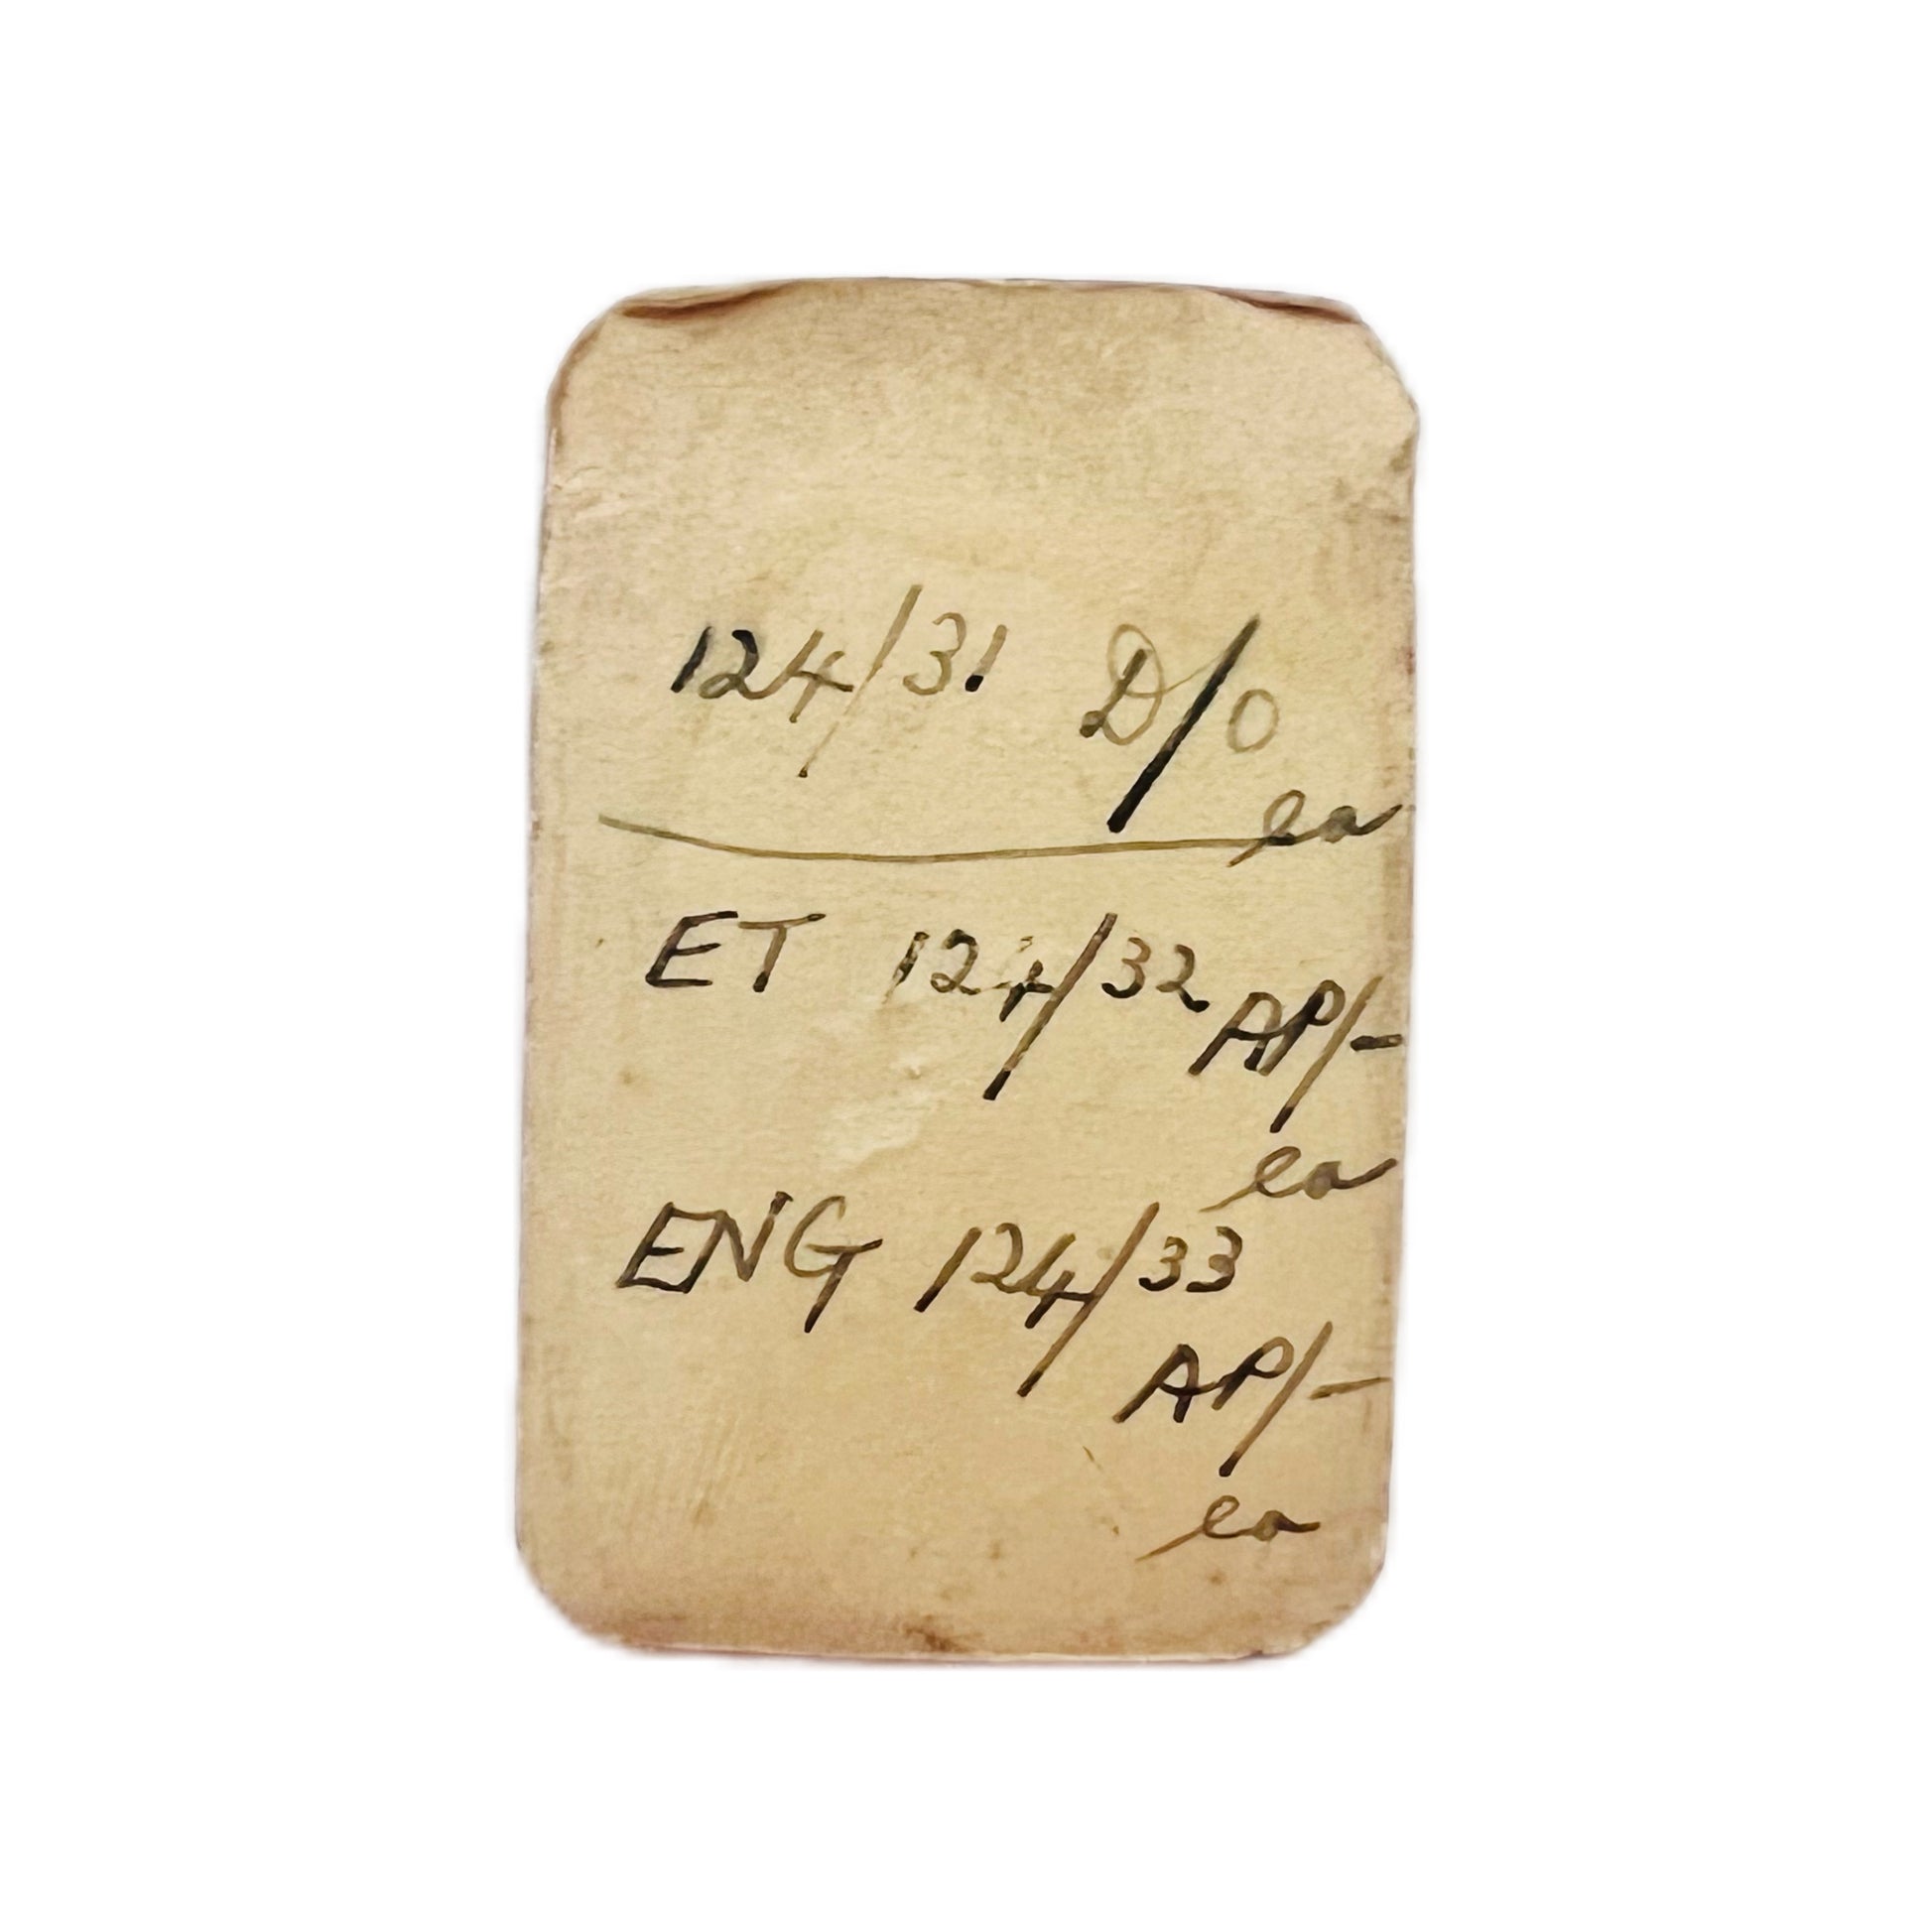 124/31 D/O
ea
ET 124/32 AP/-
ea
ENG 124/33
AP/-
ea